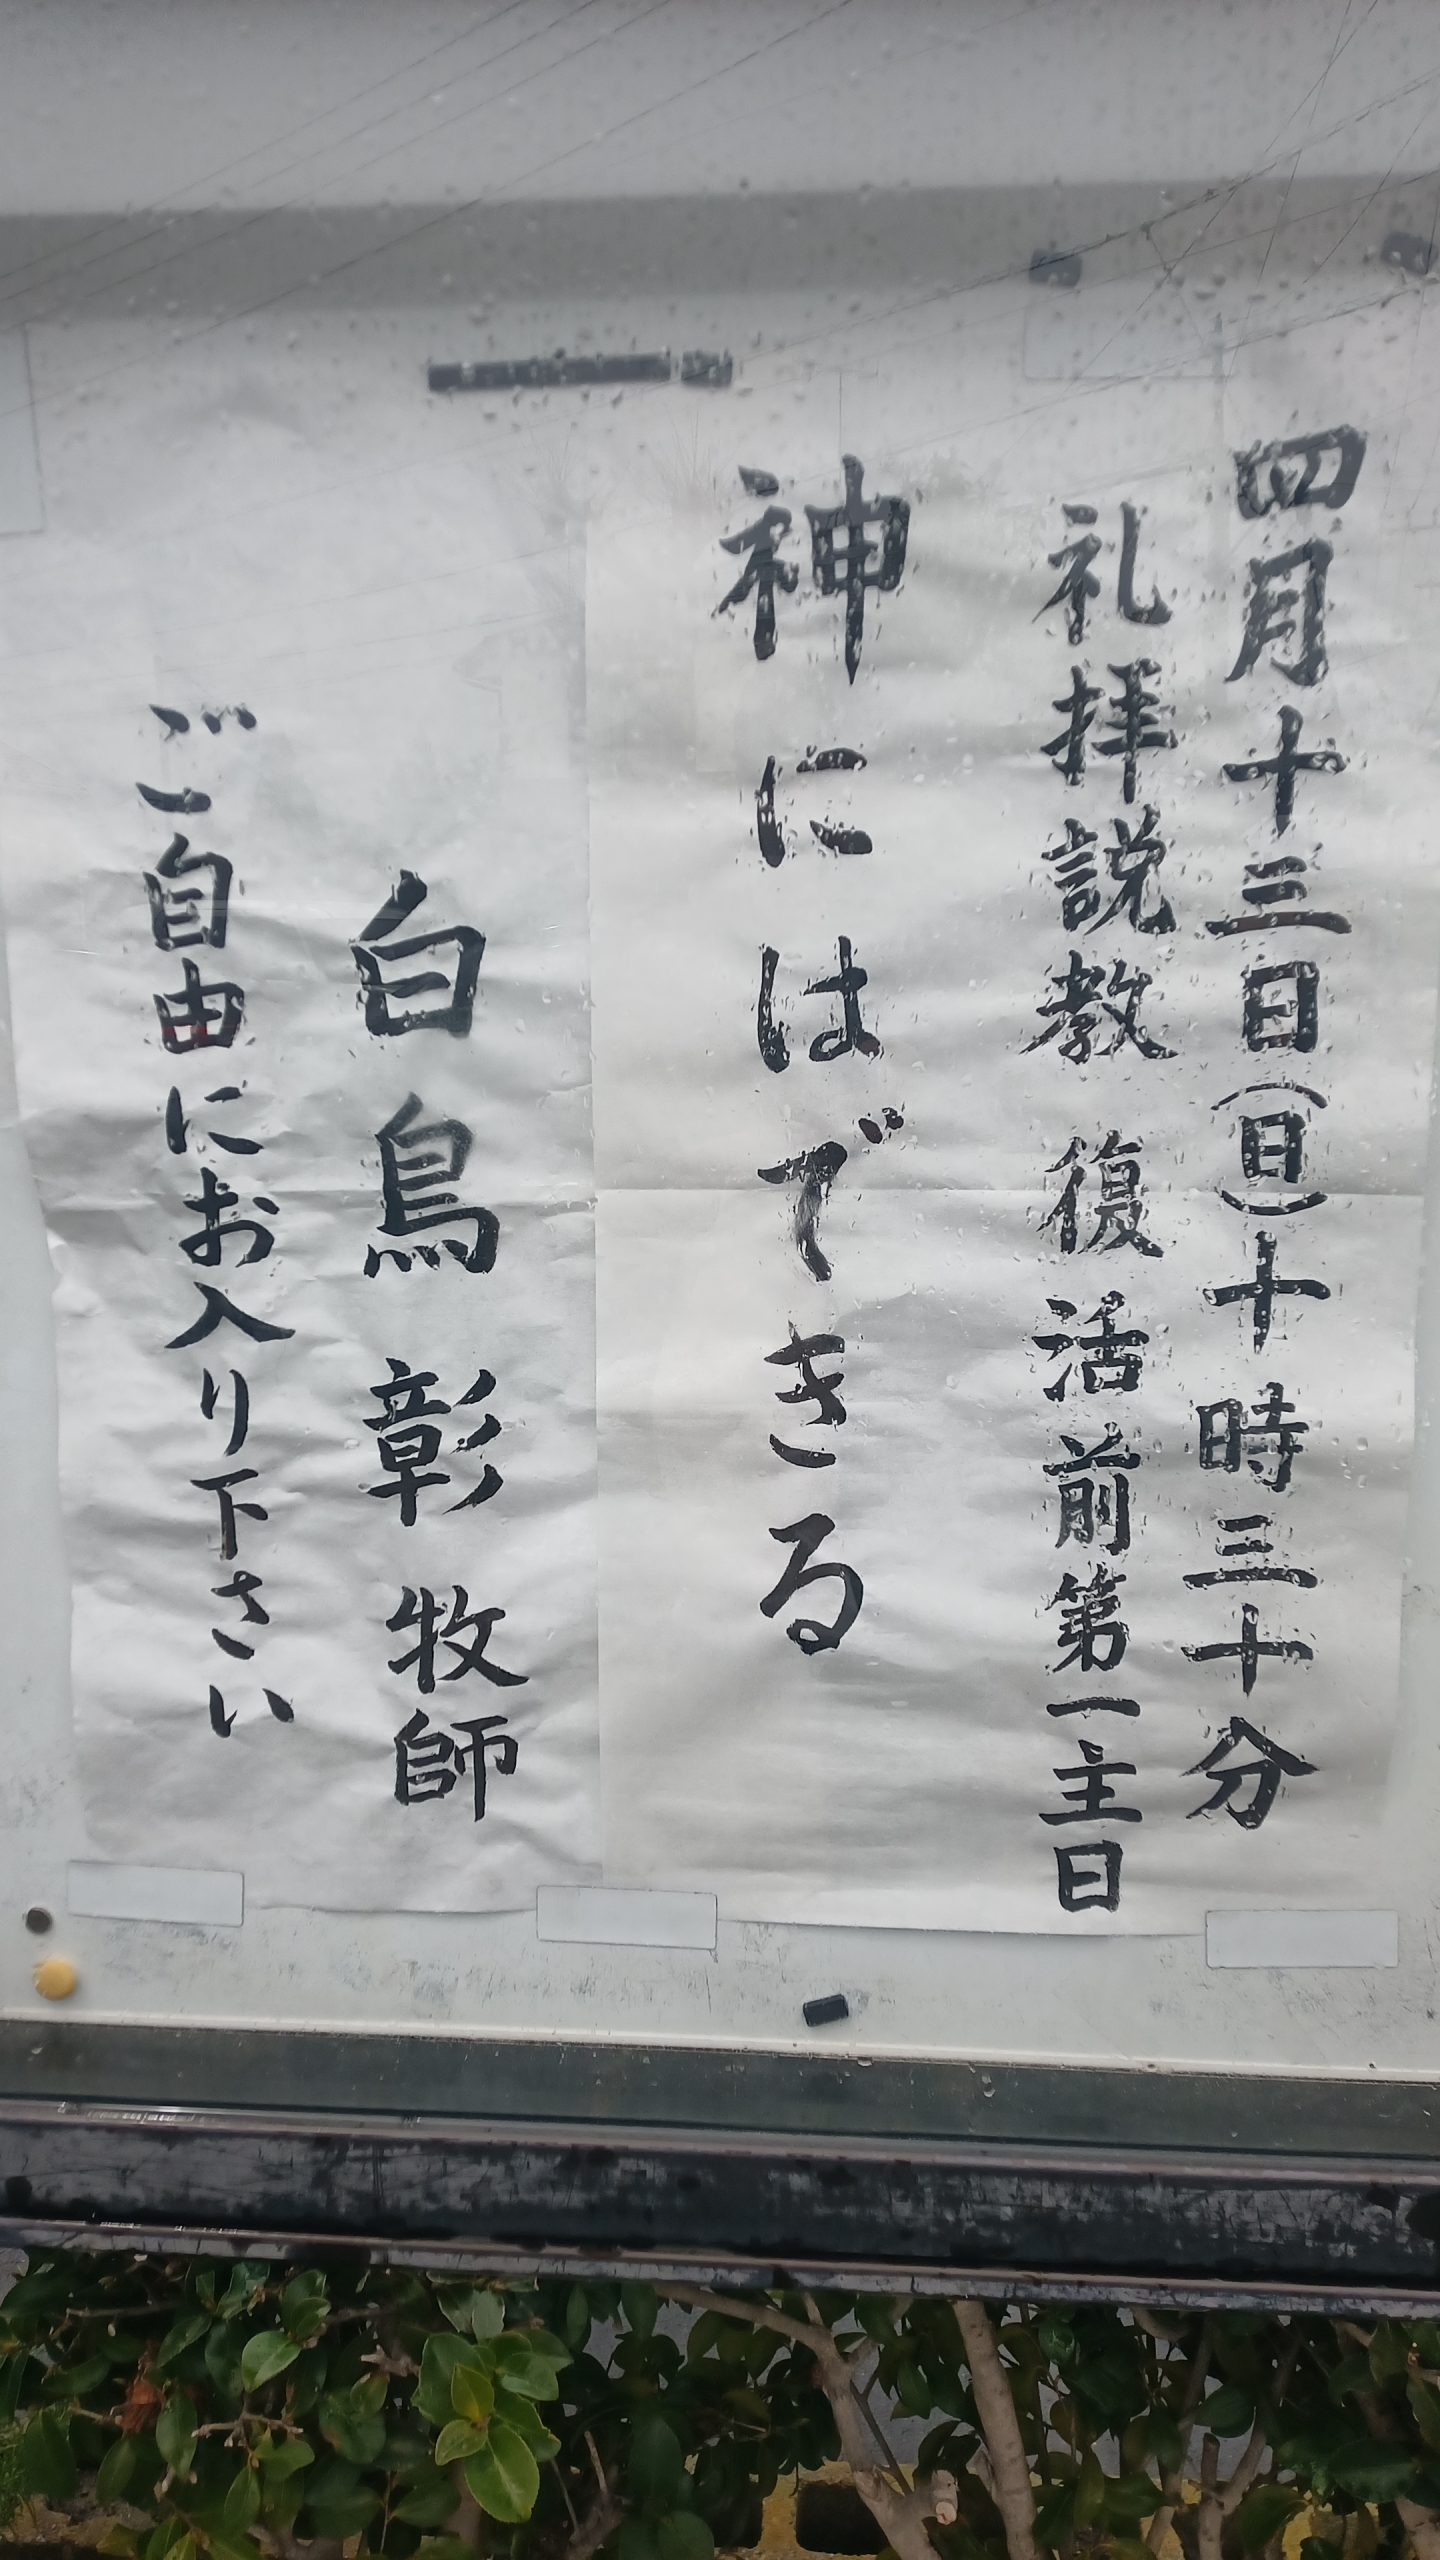 四月十三日(日)十時三十分
礼拝説教 復活前第一主日
神にはできる
白鳥彰牧師
ご自由にお入り下さい